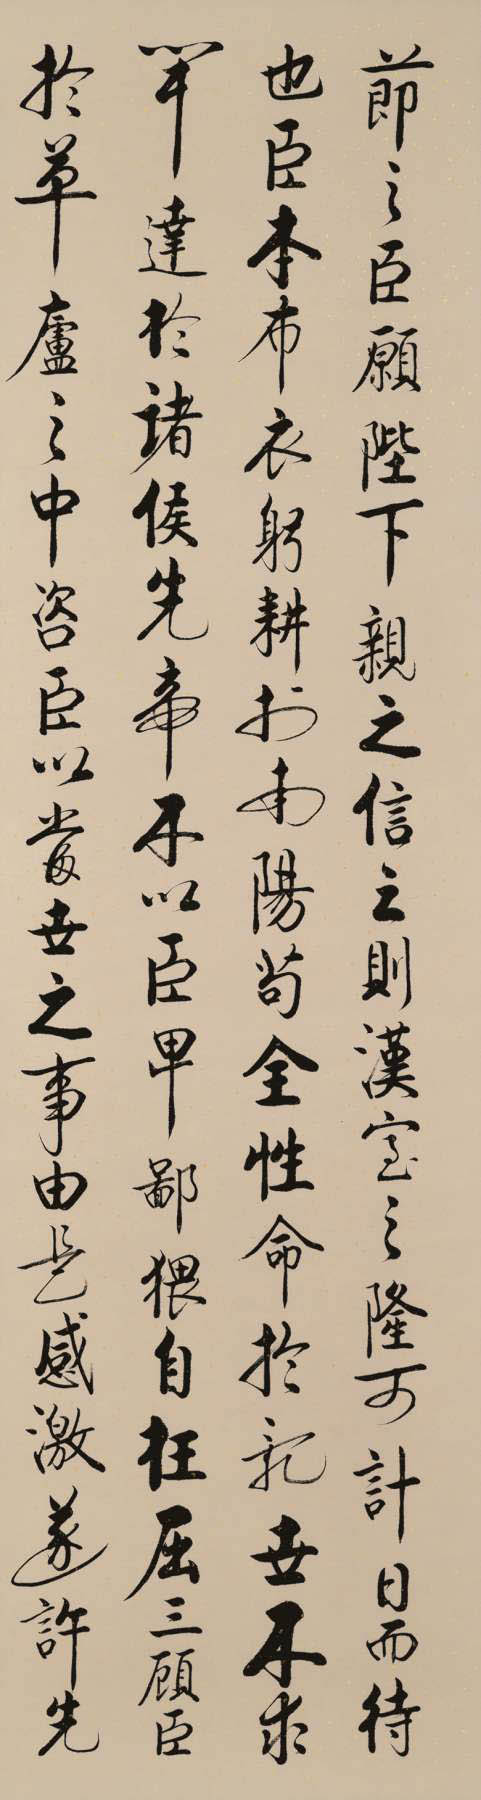 節之臣願陛下親之信之則漢室之隆可計日而待
也臣本布衣躬耕於南陽苟全性命於亂世不求
聞達於諸侯先帝不以臣卑鄙猥自枉屈三顧臣
於草廬之中咨臣以當世之事由是感激遂許先